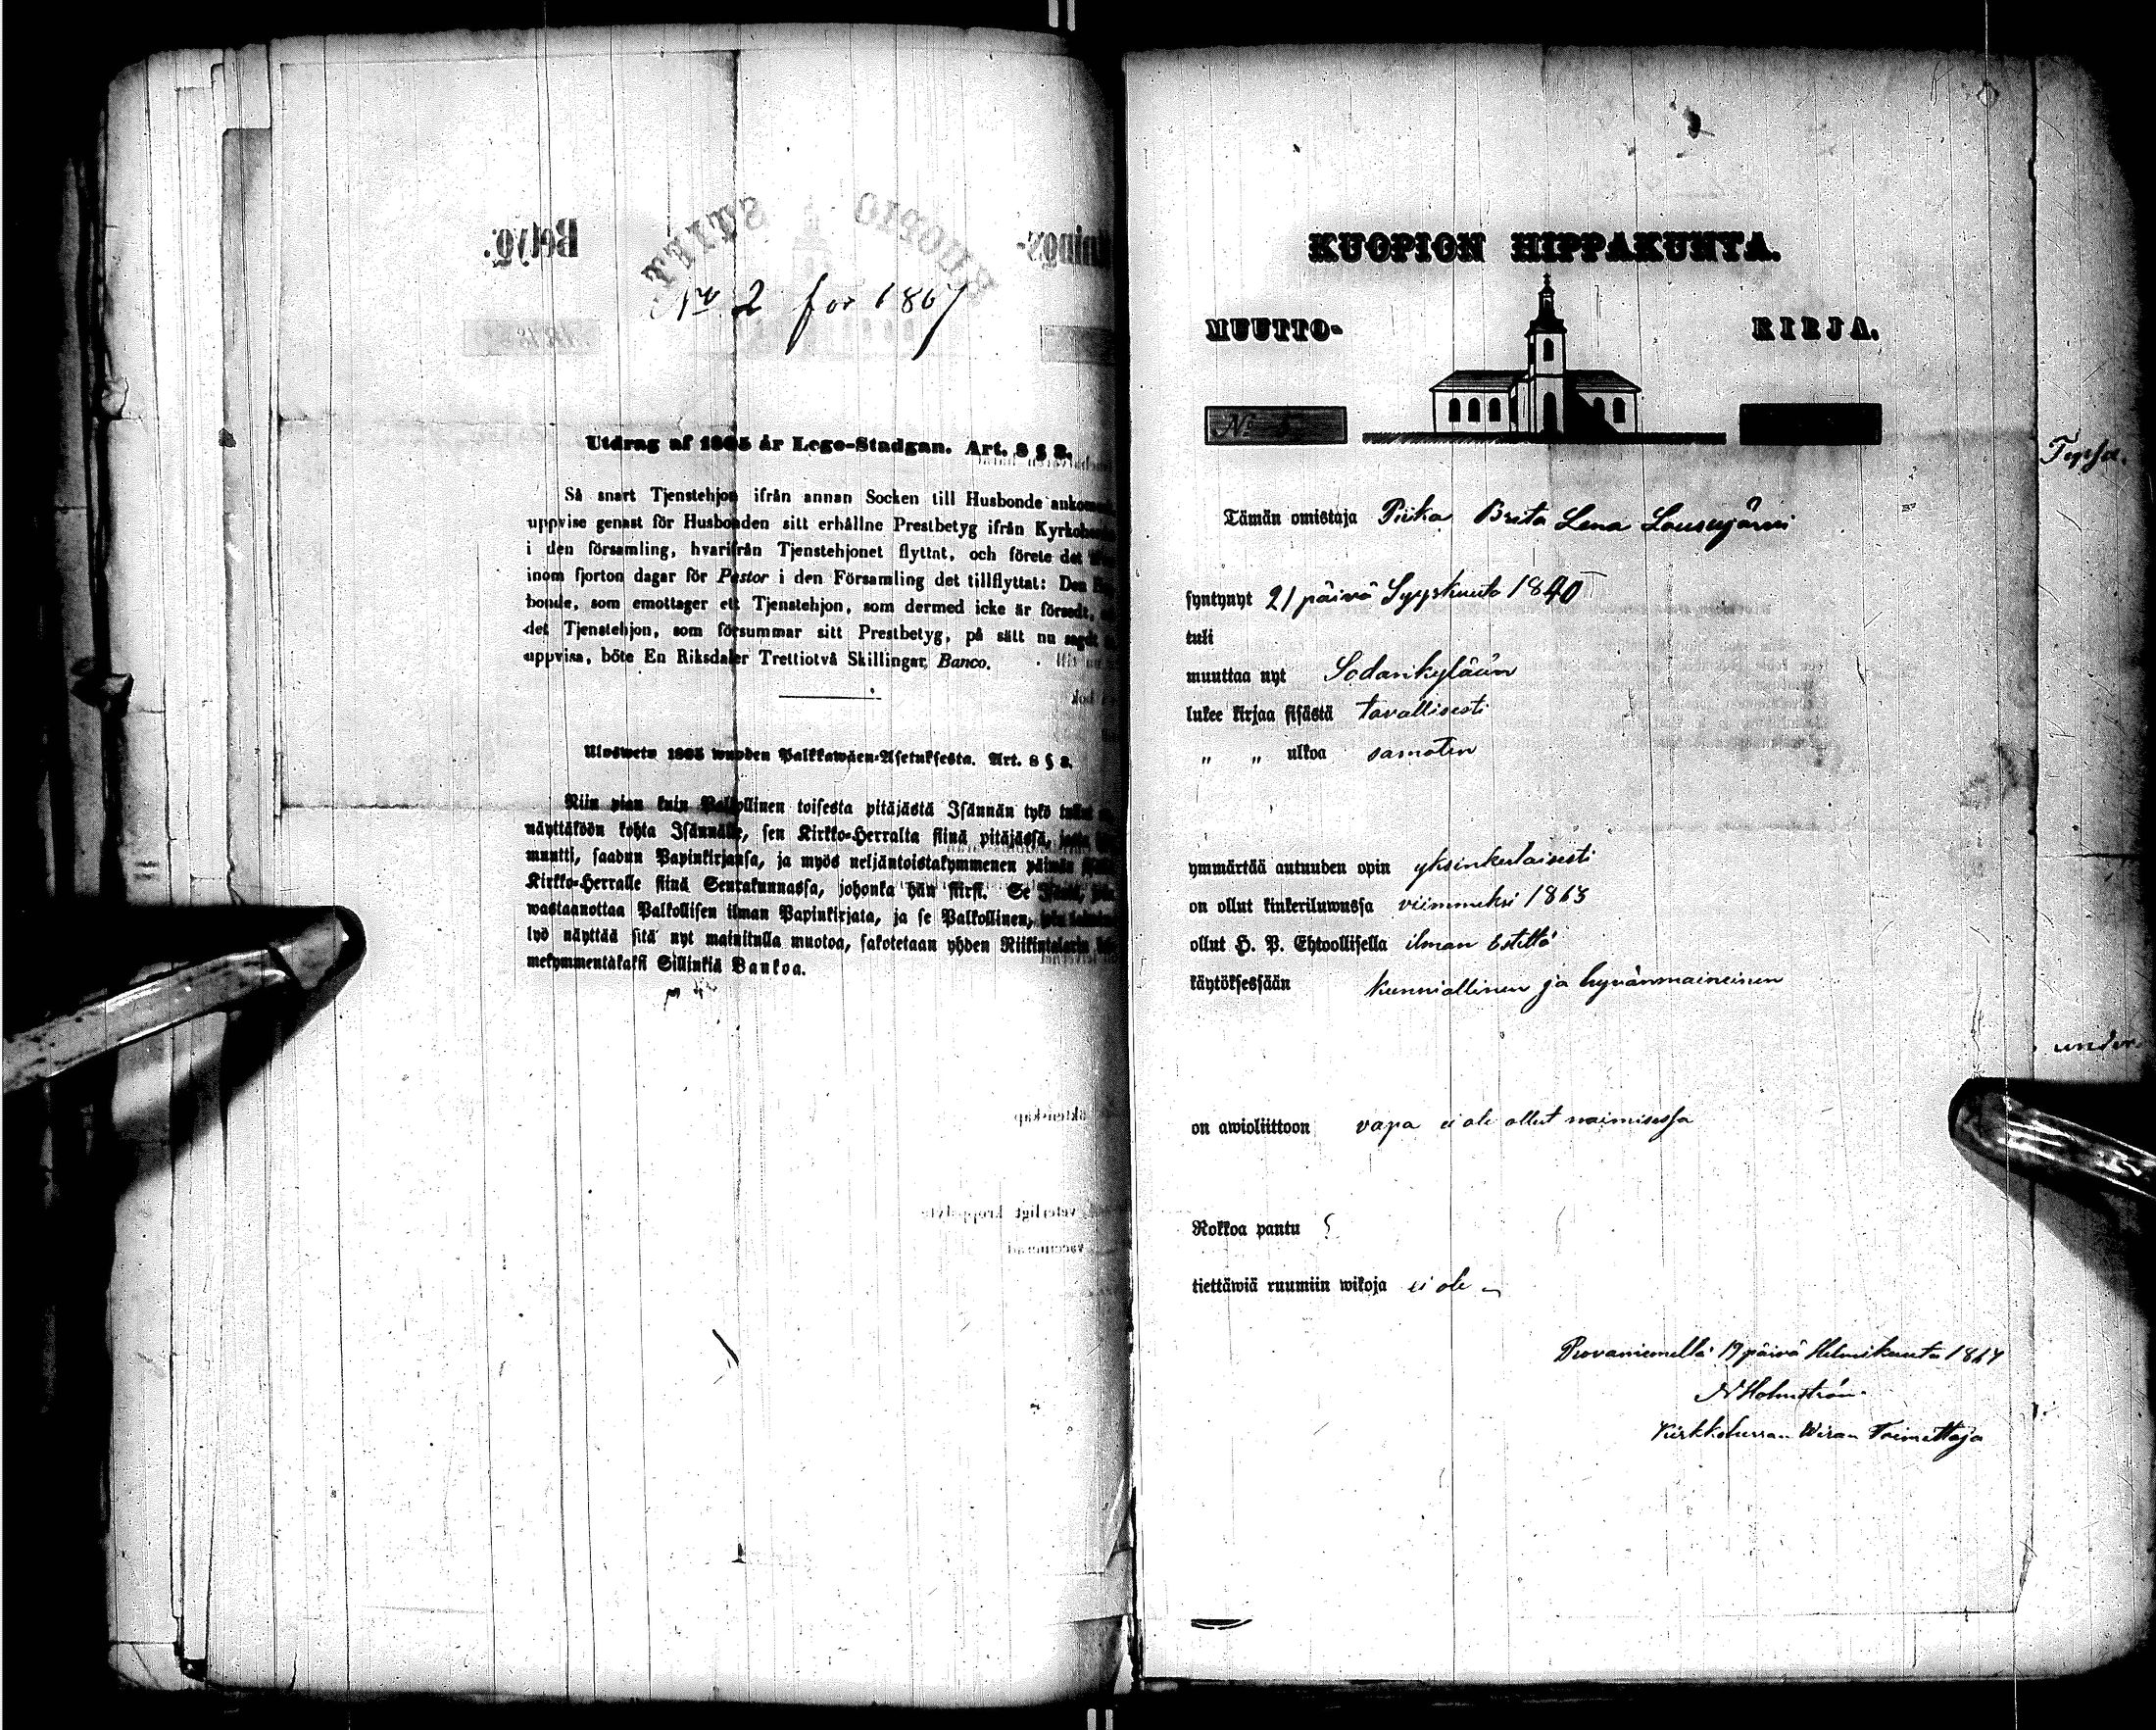 Betyg.
KUOPIO STIFT.
No 2 för 1867
Utdrag af 1865 år Lego-Stadgan. Art. 8 § 8.
Så snart Tjenstehjon ifrån annan Socken till Husbonde
uppvise genast för Husbonden sitt erhållne Prestbetyg ifrån
i den församling, hvarifrån Tjenstehjonet flyttat, och förete det
inom fjorton dagar för Pastor i den Församling det tillflyttat: Den
bonde, som emottager ett Tjenstehjon, som dermed icke är försedt,
det Tjenstehjon, som försummar sitt Prestbetyg, på sätt nu sagdt
uppvisa, böte En Riksdaler Trettiotvå Skillingar, Banco.
Uloswetu 1865 wuoden Palkkawäen-Asetuksesta. Art. 8 § 8.
Niin pian kuin Palkollinen toisesta pitäjästä Isännän tykö
näyttäköön kohta Isännälle, sen Kirkko-Herralta siinä pitäjässä,
muutti, saadun Papinkirjansa, ja myös neljäntoistakymmenen päiwän
Kirkko-Herralle siinä Seurakunnassa, johonka hän siirsi. Se
wastaanottaa Palkollisen ilman Papinkirjata, ja se Palkollinen,
lyö näyttää sitä nyt mainitulla muotoa, sakotetaan yhden Riikintalarin
mekymmentäkaksi Sillinkiä Bankoa.
KUOPION HIPPAKUNTA.
MUUTTO- KIRJA.
No
Tämän omistaja Piika Brita Lena Lousujärvi
syntynyt 21 päivä Syyskuuta 1840
tuli
muuttaa nyt Sodankylään
lukee kirjaa sisästä tavallisesti
" " ulkoa samoten
ymmärtää autuuden opin yksinkertaisesti
on ollut kinkeriluwussa viimmeksi 1863
ollut H. P. Ehtoollisella ilman estettä
käytöksessään kunniallinen ja hyvänmaineinen
on awioliittoon vapa ei ole ollut naimisessa
Rokkoa pantu
tiettäwiä ruumiin wikoja ei ole
Rovaniemellä 19 päivä Helmikuuta
N Holmström
Kirkkoherran Viran Toimittaja
under